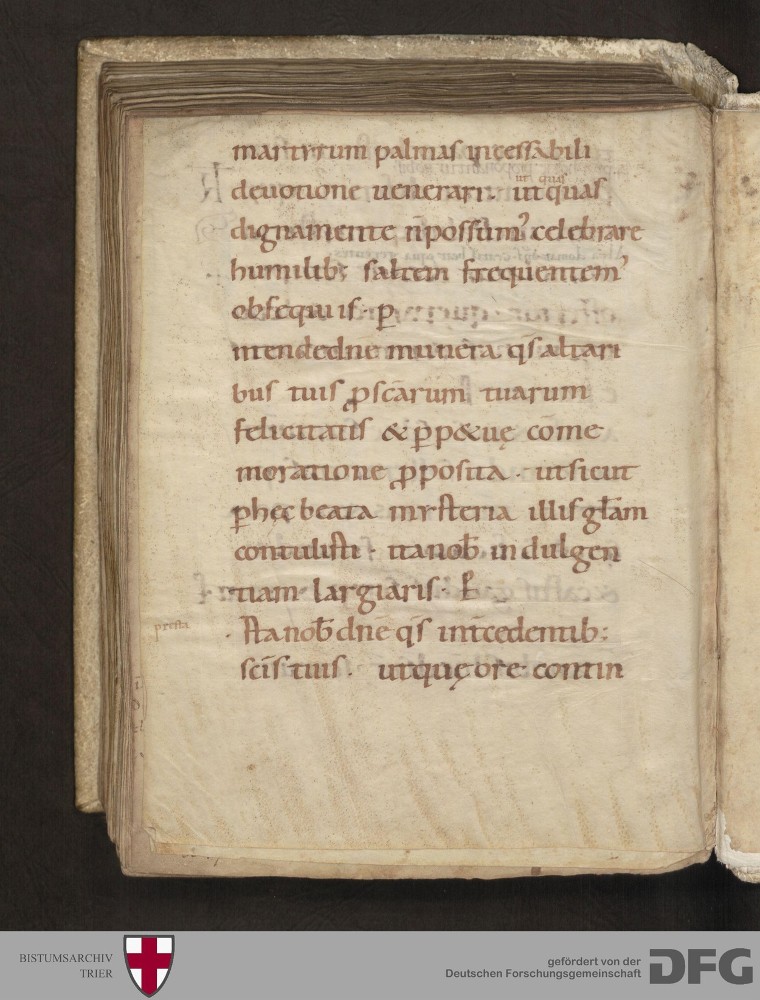 martyrum palmas incessabili
deuotione uenerari. ut quas
ut quas
dignamente n̄ possum᷒ celebrare
humilib; saltem frequentem᷒
obsequiis. p̱
ntende dne munera qs altari
bus tuis ꝓ scārum tuarum
felicitatis & ꝑp&uę cōme
moratione ꝓposita . ut sicut
ꝑ hęc beata mysteria illis glām
contulisti . ita nob̄ indulgen
tiam largiaris .
presta
. sta nob̄ dne qs̄ int̄cedentib;
sc̄is tuis . ut quę ore contin
BISTUMSARCHIV
TRIER
gefördert von der
Deutschen Forschungsgemeinschaft
DFG